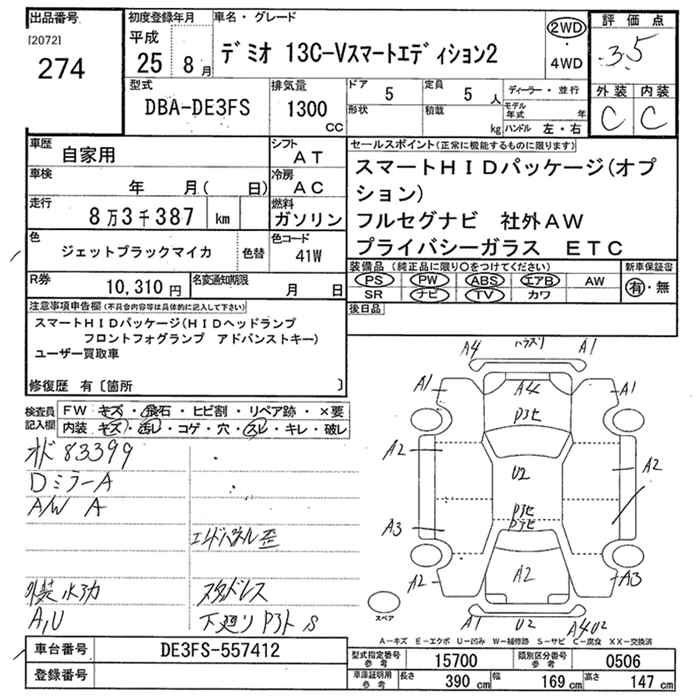 出品番号 初度登録年月 車名・グレード 評価点
[2072] 平成 2WD
274 25 8月 デミオ 13C-Vスマートエディション2 ・ 3.5
4WD
型式 排気量 ドア 5 定員 5人 ディーラー・並行 外装 内装
DBA-DE3FS 1300 CC 形状 積載 kg モデル年式 年 C C
ハンドル 左・右
車歴 自家用 シフト AT セールスポイント(正常に機能するものに限ります)
車検 年 月( 日) 冷房 AC スマートHIDパッケージ(オプ
ション)
走行 8万3千387 km 燃料 ガソリン フルセグナビ 社外AW
色 ジェットブラックマイカ 色替 色コード 41W プライバシーガラス ETC
装備品(純正品に限り○をつけてください) 新車保証書
R券 10,310円 名変通知期限 月 日 PS PW ABS エアB AW 有・無
SR ナビ TV カワ
注意事項申告欄(不具合内容等は具体的に記入して下さい) 後日品
スマートHIDパッケージ(HIDヘッドランプ
フロントフォグランプ アドバンストキー)
ユーザー買取車
修復歴 有〔箇所 〕
検査員記入欄 FW キズ・飛石・ヒビ割・リペア跡・×要
内装 キズ・汚レ・コゲ・穴・スレ・キレ・破レ
83399
DミラーA
A/W A
エンドパネル歪
スタッドレス
A,U 下廻り S
A4 A1
A1 A4 A1
A2 U2 A2
A3
A2 A2 A3
スペア A1 U2 A4U2
A-キズ E-エクボ U-凹み W-補修跡 S-サビ C-腐食 XX-交換済
車台番号 DE3FS-557412 型式指定番号 参考 15700 類別区分番号 参考 0506
登録番号 車庫証明用 参考 長さ 390 cm 幅 169 cm 高さ 147 cm